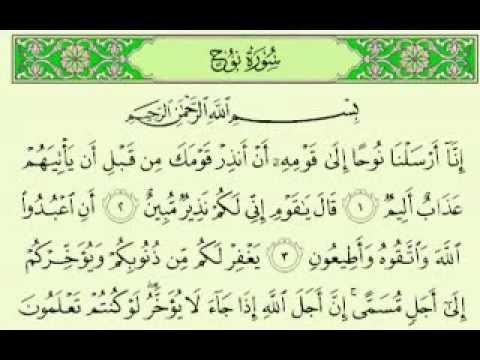 سُورَةُ نُوحٍ
بِسْمِ ٱللَّهِ ٱلرَّحْمَٰنِ ٱلرَّحِيمِ
إِنَّآ أَرْسَلْنَا نُوحًا إِلَىٰ قَوْمِهِۦٓ أَنْ أَنذِرْ قَوْمَكَ مِن قَبْلِ أَن يَأْتِيَهُمْ
عَذَابٌ أَلِيمٌ ١ قَالَ يَٰقَوْمِ إِنِّي لَكُمْ نَذِيرٌ مُّبِينٌ ٢ أَنِ ٱعْبُدُوا۟
ٱللَّهَ وَٱتَّقُوهُ وَأَطِيعُونِ ٣ يَغْفِرْ لَكُم مِّن ذُنُوبِكُمْ وَيُؤَخِّرْكُمْ
إِلَىٰٓ أَجَلٍ مُّسَمًّى ۚ إِنَّ أَجَلَ ٱللَّهِ إِذَا جَآءَ لَا يُؤَخَّرُ ۖ لَوْ كُنتُمْ تَعْلَمُونَ